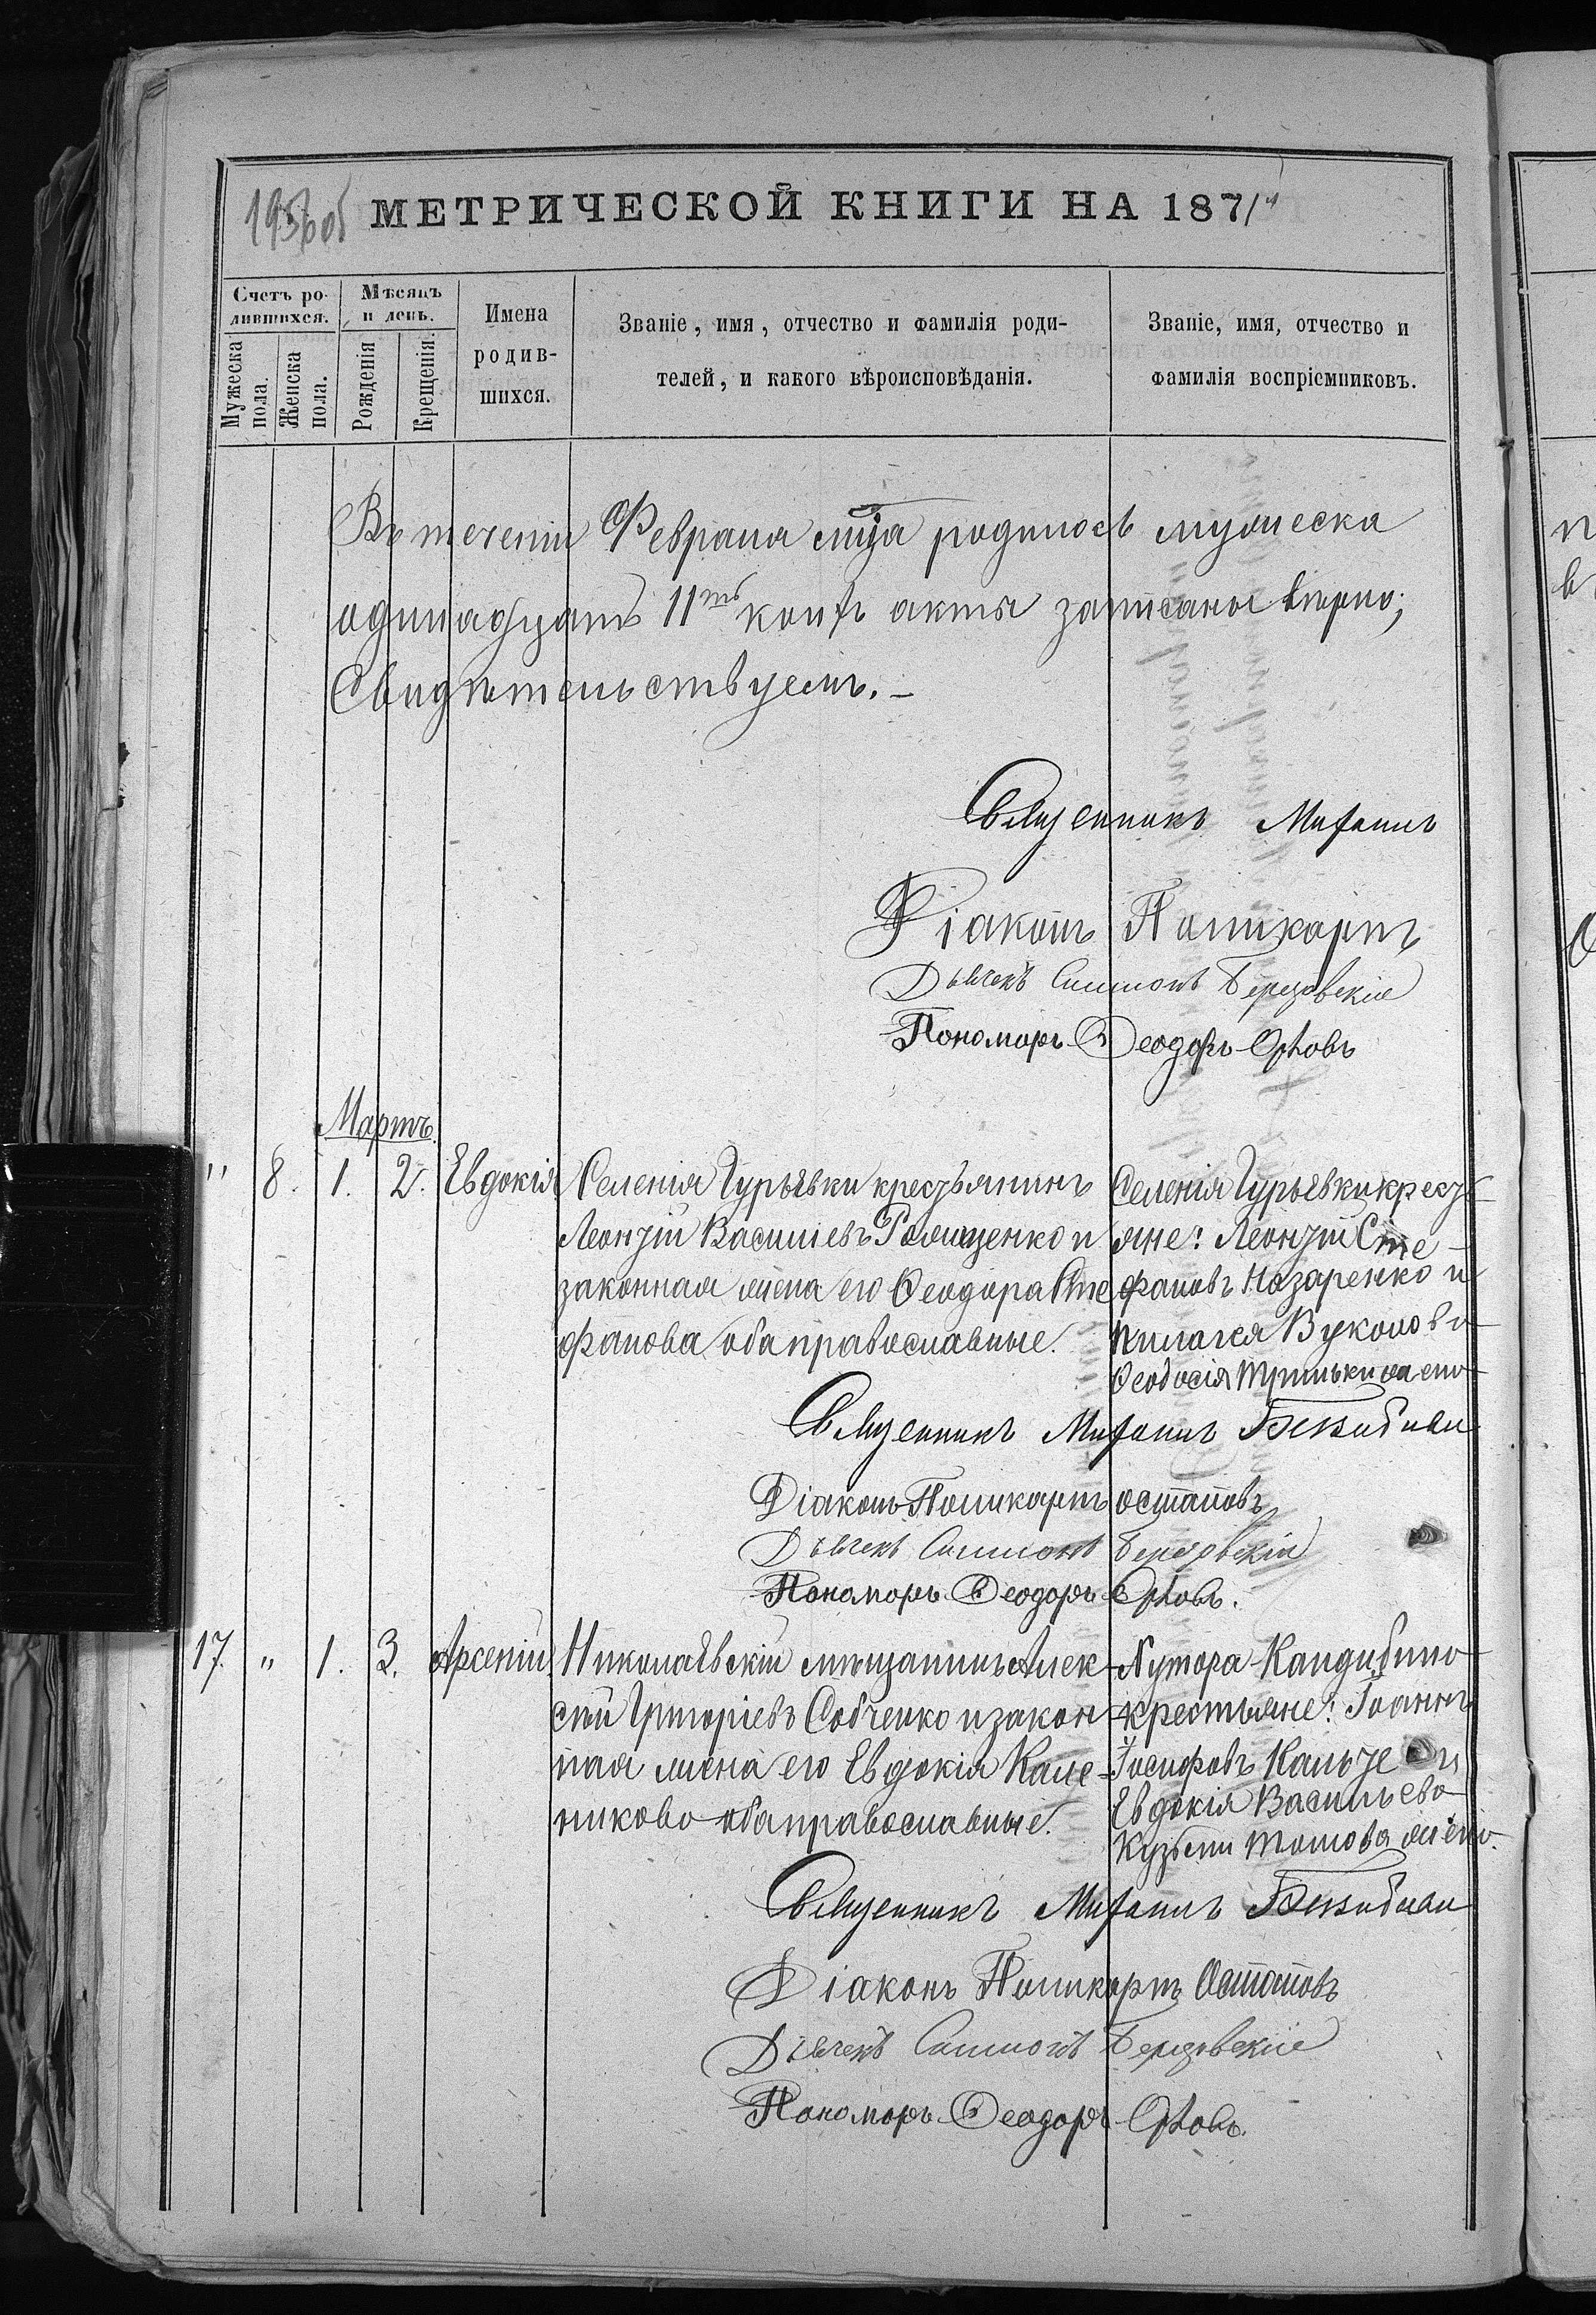 МЕТРИЧЕСКОЙ КНИГИ НА 1871
Счетъ ро-
дившихся.
Мужеска пола.
Женска пола.
Мѣсяцъ
и день.
Рожденія
Крещенія
Имена
родив-
шихся.
Званіе, имя, отчество и фамилія роди-
телей, и какого вѣроисповѣданія.
Званіе, имя, отчество и
фамилія воспріемниковъ.
Въ теченіи Февраля мца родилось мужеска
одинадцать 11ть коихъ акты записаны вѣрно;
Свидѣтельствуемъ. –
Священникъ Михаилъ
Діаконъ Поликарпъ
Дьячекъ Симеонъ Березовскій
Пономарь Ѳеодоръ Орловъ
Мартъ
" 8. 1. 2. Евдокія
Селенія Гурьевки крестьянинъ
Леонтій Васильевъ Романенко и
законная жена его Ѳеодора Сте
фанова оба православные.
Селенія Гурьевки кресть
яне: Леонтій Сте-
фановъ Назаренко и
Ѳеодосія
Священникъ Михаилъ
Діаконъ Поликарпъ Остаповъ
Дьячекъ Симеонъ Березовскій
Пономарь Ѳеодоръ Орловъ.
17. " 1. 3. Арсеній
Николаевскій мѣщанинъ Алек-
сѣй Григоріевъ Собченко и закон-
ная жена его Евдокія Кале-
никова оба православные.
Хутора Кандибино
крестьяне: Іоаннъ
Іосифовъ и
Евдокія Васильева
Священникъ Михаилъ
Діаконъ Поликарпъ Остаповъ
Дьячекъ Симеонъ Березовскій
Пономарь Ѳеодоръ Орловъ.